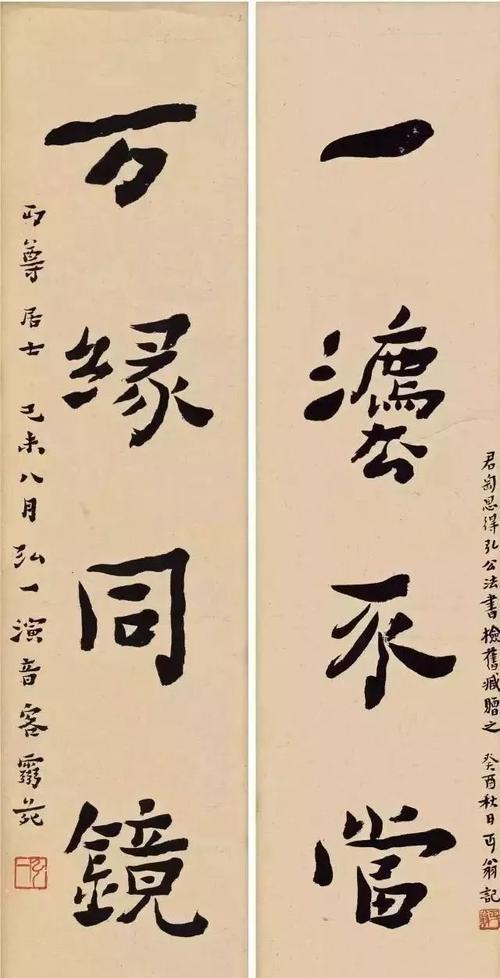 一灋不當
君匋思得弘公法書檢舊臧贈之 癸酉秋日丏翁記
万緣同鏡
丏尊居士 己未八月弘一演音客靈苑
弘一